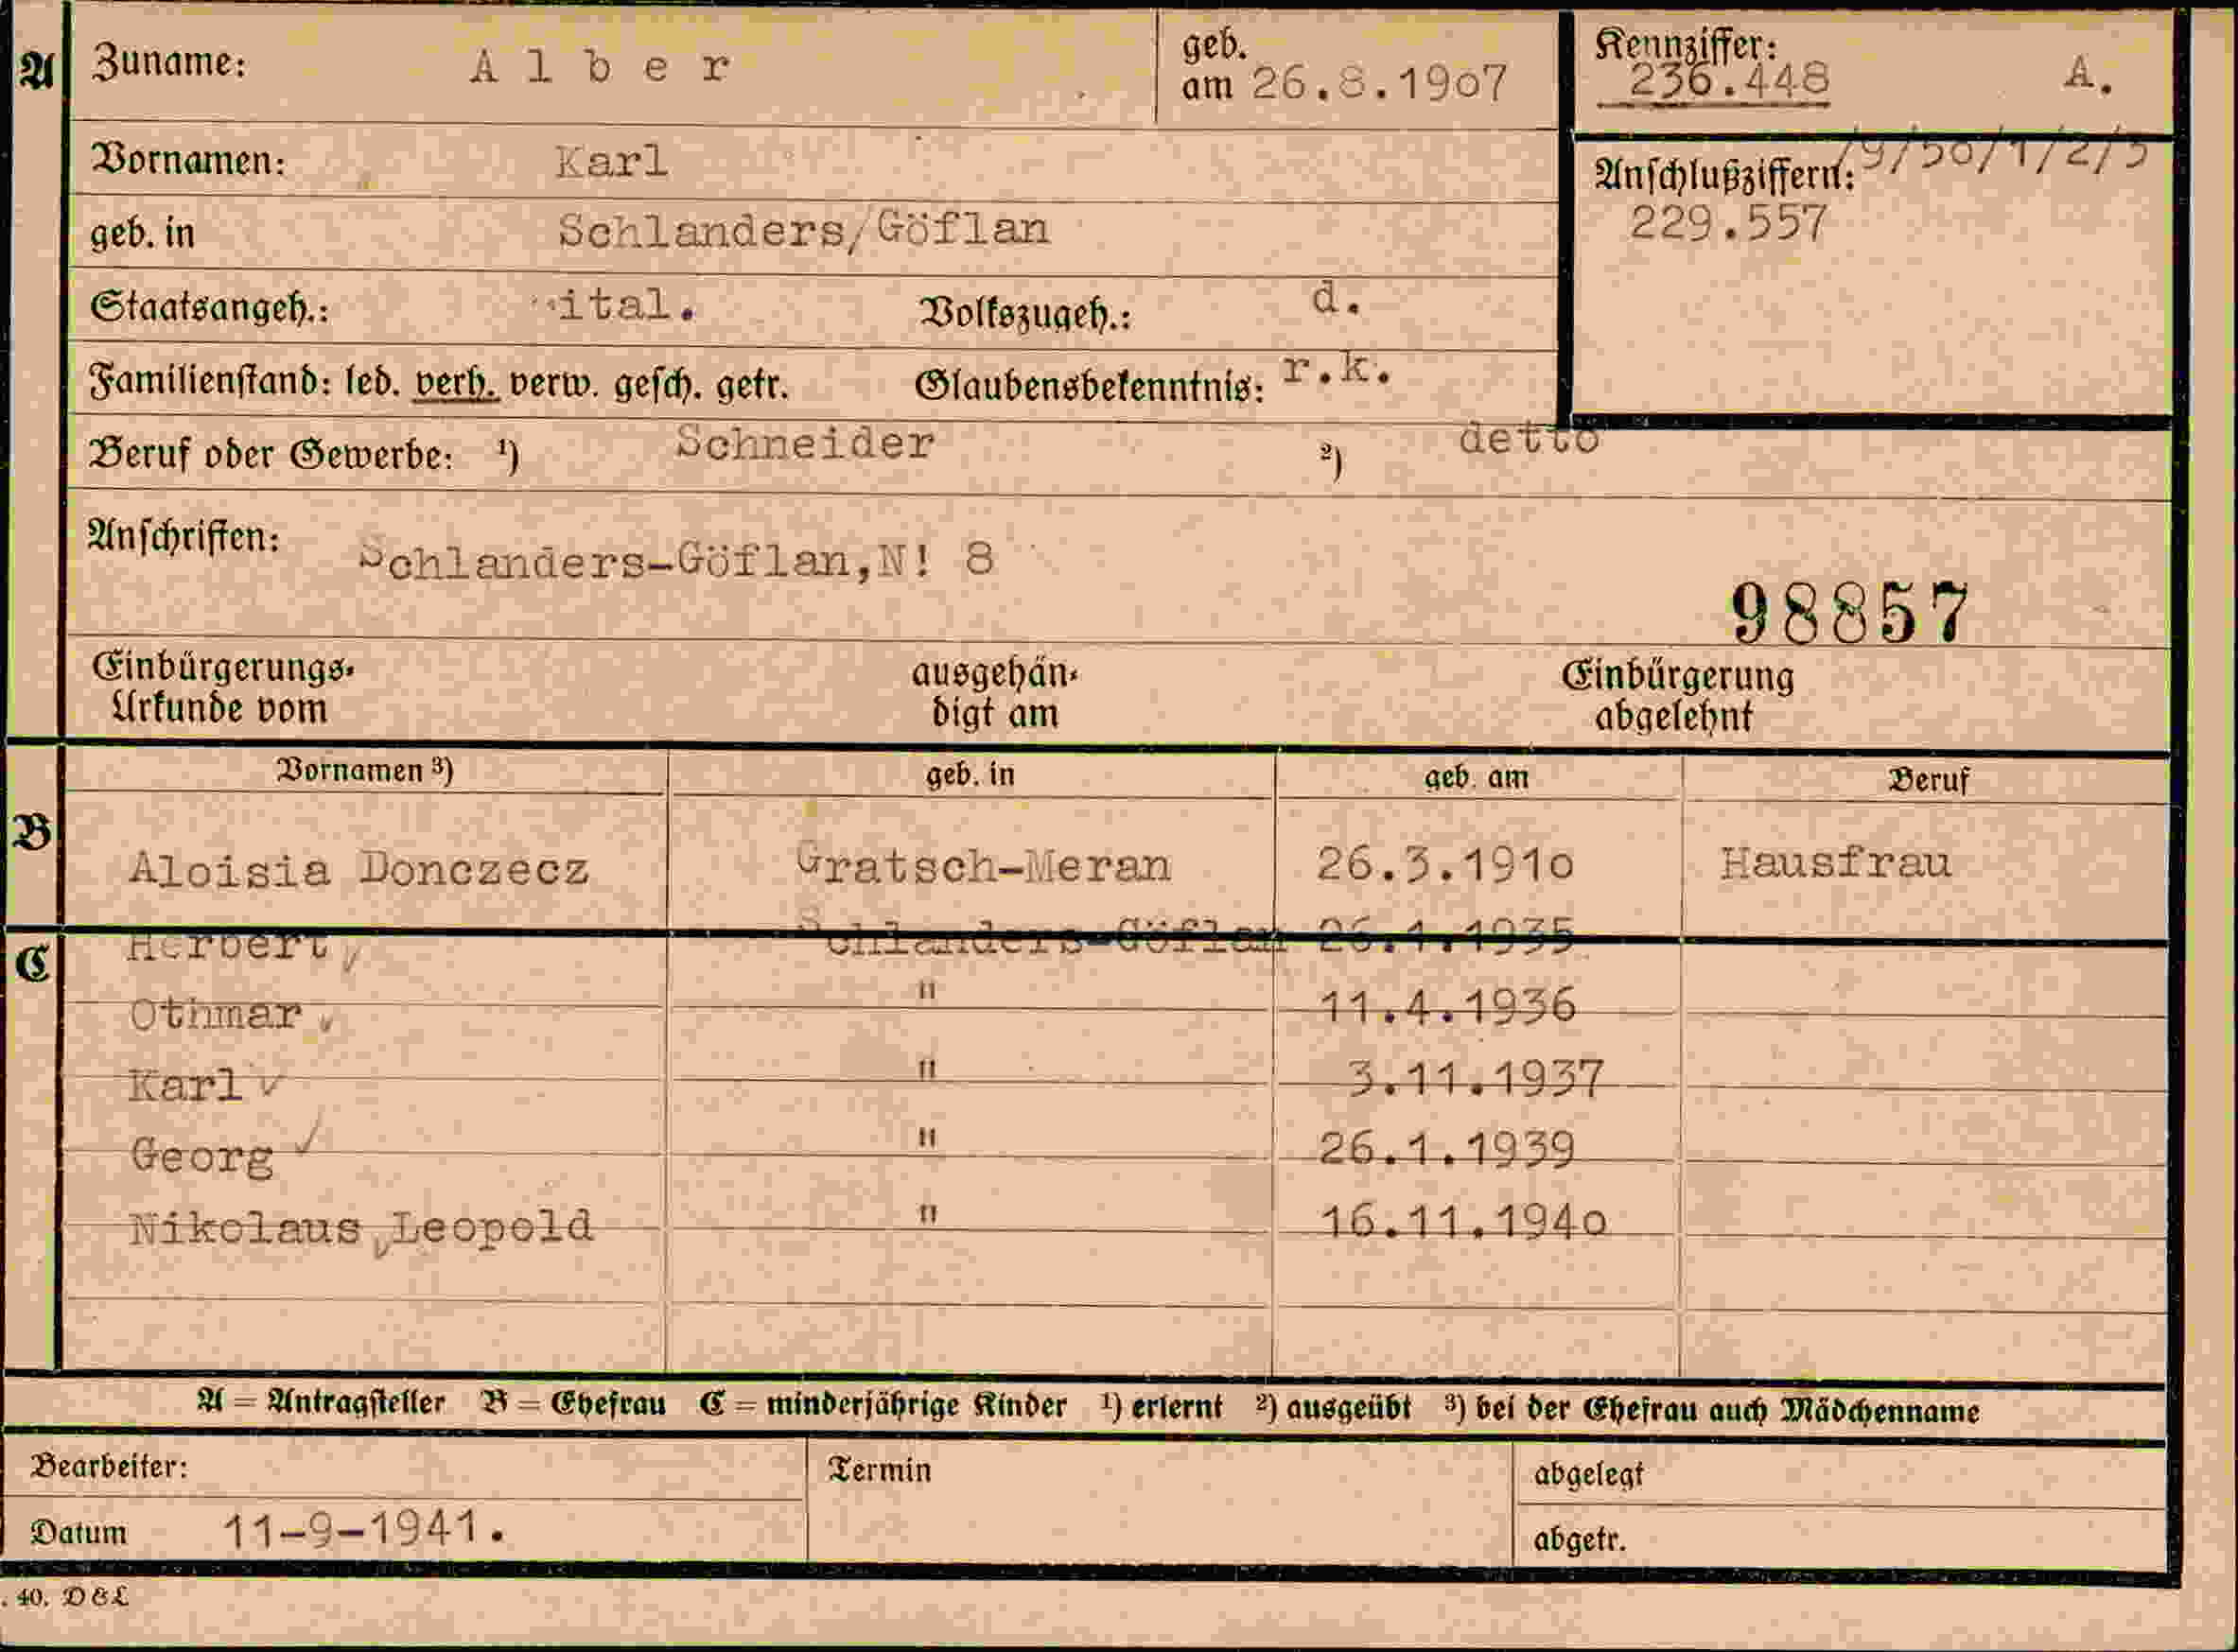 A Zuname: Alber geb. am 26.8.1907 Kennziffer: 236.448 A.
Vornamen: Karl Anschlußziffern:
geb. in Schlanders/Göflan 229.557
Staatsangeh.: ital. Volkszugeh.: d.
Familienstand: led. verh. verw. gesch. getr. Glaubensbekenntnis: r.k.
Beruf oder Gewerbe: ¹) Schneider ²) detto
Anschriften: Schlanders-Göflan,N! 8
98857
Einbürgerungs-Urkunde vom ausgehändigt am Einbürgerung abgelehnt
Vornamen ³) geb. in geb. am Beruf
B Aloisia Donczecz Gratsch-Meran 26.3.1910 Hausfrau
C Herbert Schlanders-Göflan 26.1.1935
Othmar " 11.4.1936
Karl " 3.11.1937
Georg " 26.1.1939
Nikolaus,Leopold " 16.11.1940
A = Antragsteller B = Ehefrau C = minderjährige Kinder ¹) erlernt ²) ausgeübt ³) bei der Ehefrau auch Mädchenname
Bearbeiter: Termin abgelegt
Datum 11-9-1941. abgetr.
. 40. D&L